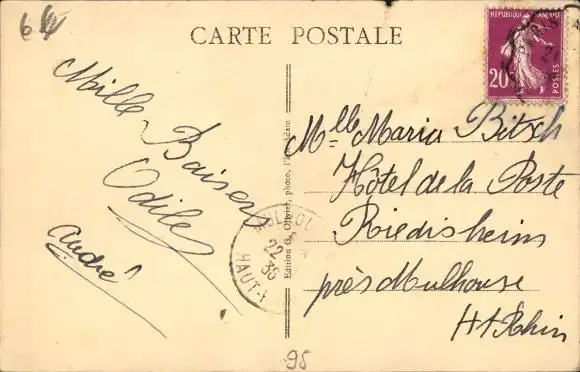 64
CARTE POSTALE
REPUBLIQUE FRANÇAISE
20
POSTES
Mille
Baisers
Odile
André
MULHOUSE
22
36
HAUT-
Edition G. Olivier, photo,
Mlle Maria Bitsch
Hôtel de la Poste
Riedisheim
près Mulhouse
Ht Rhin
95